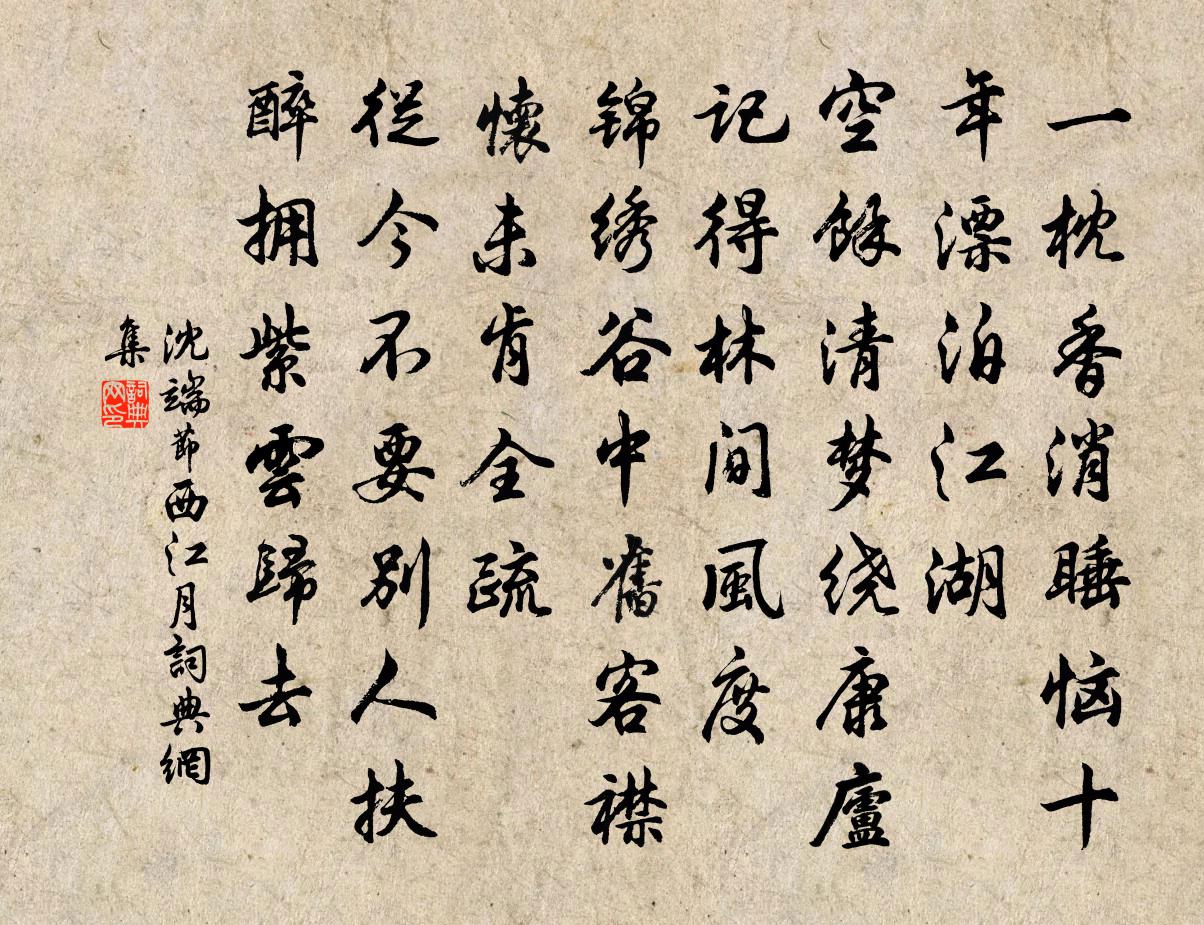 一枕香消睡恼十
年漂泊江湖
空馀清梦绕康廬
记得林间風度
锦绣谷中舊客襟
懷未肯全疏
從今不要别人扶
醉拥紫雲歸去
沈端節西江月詞典網
集
詞典网印